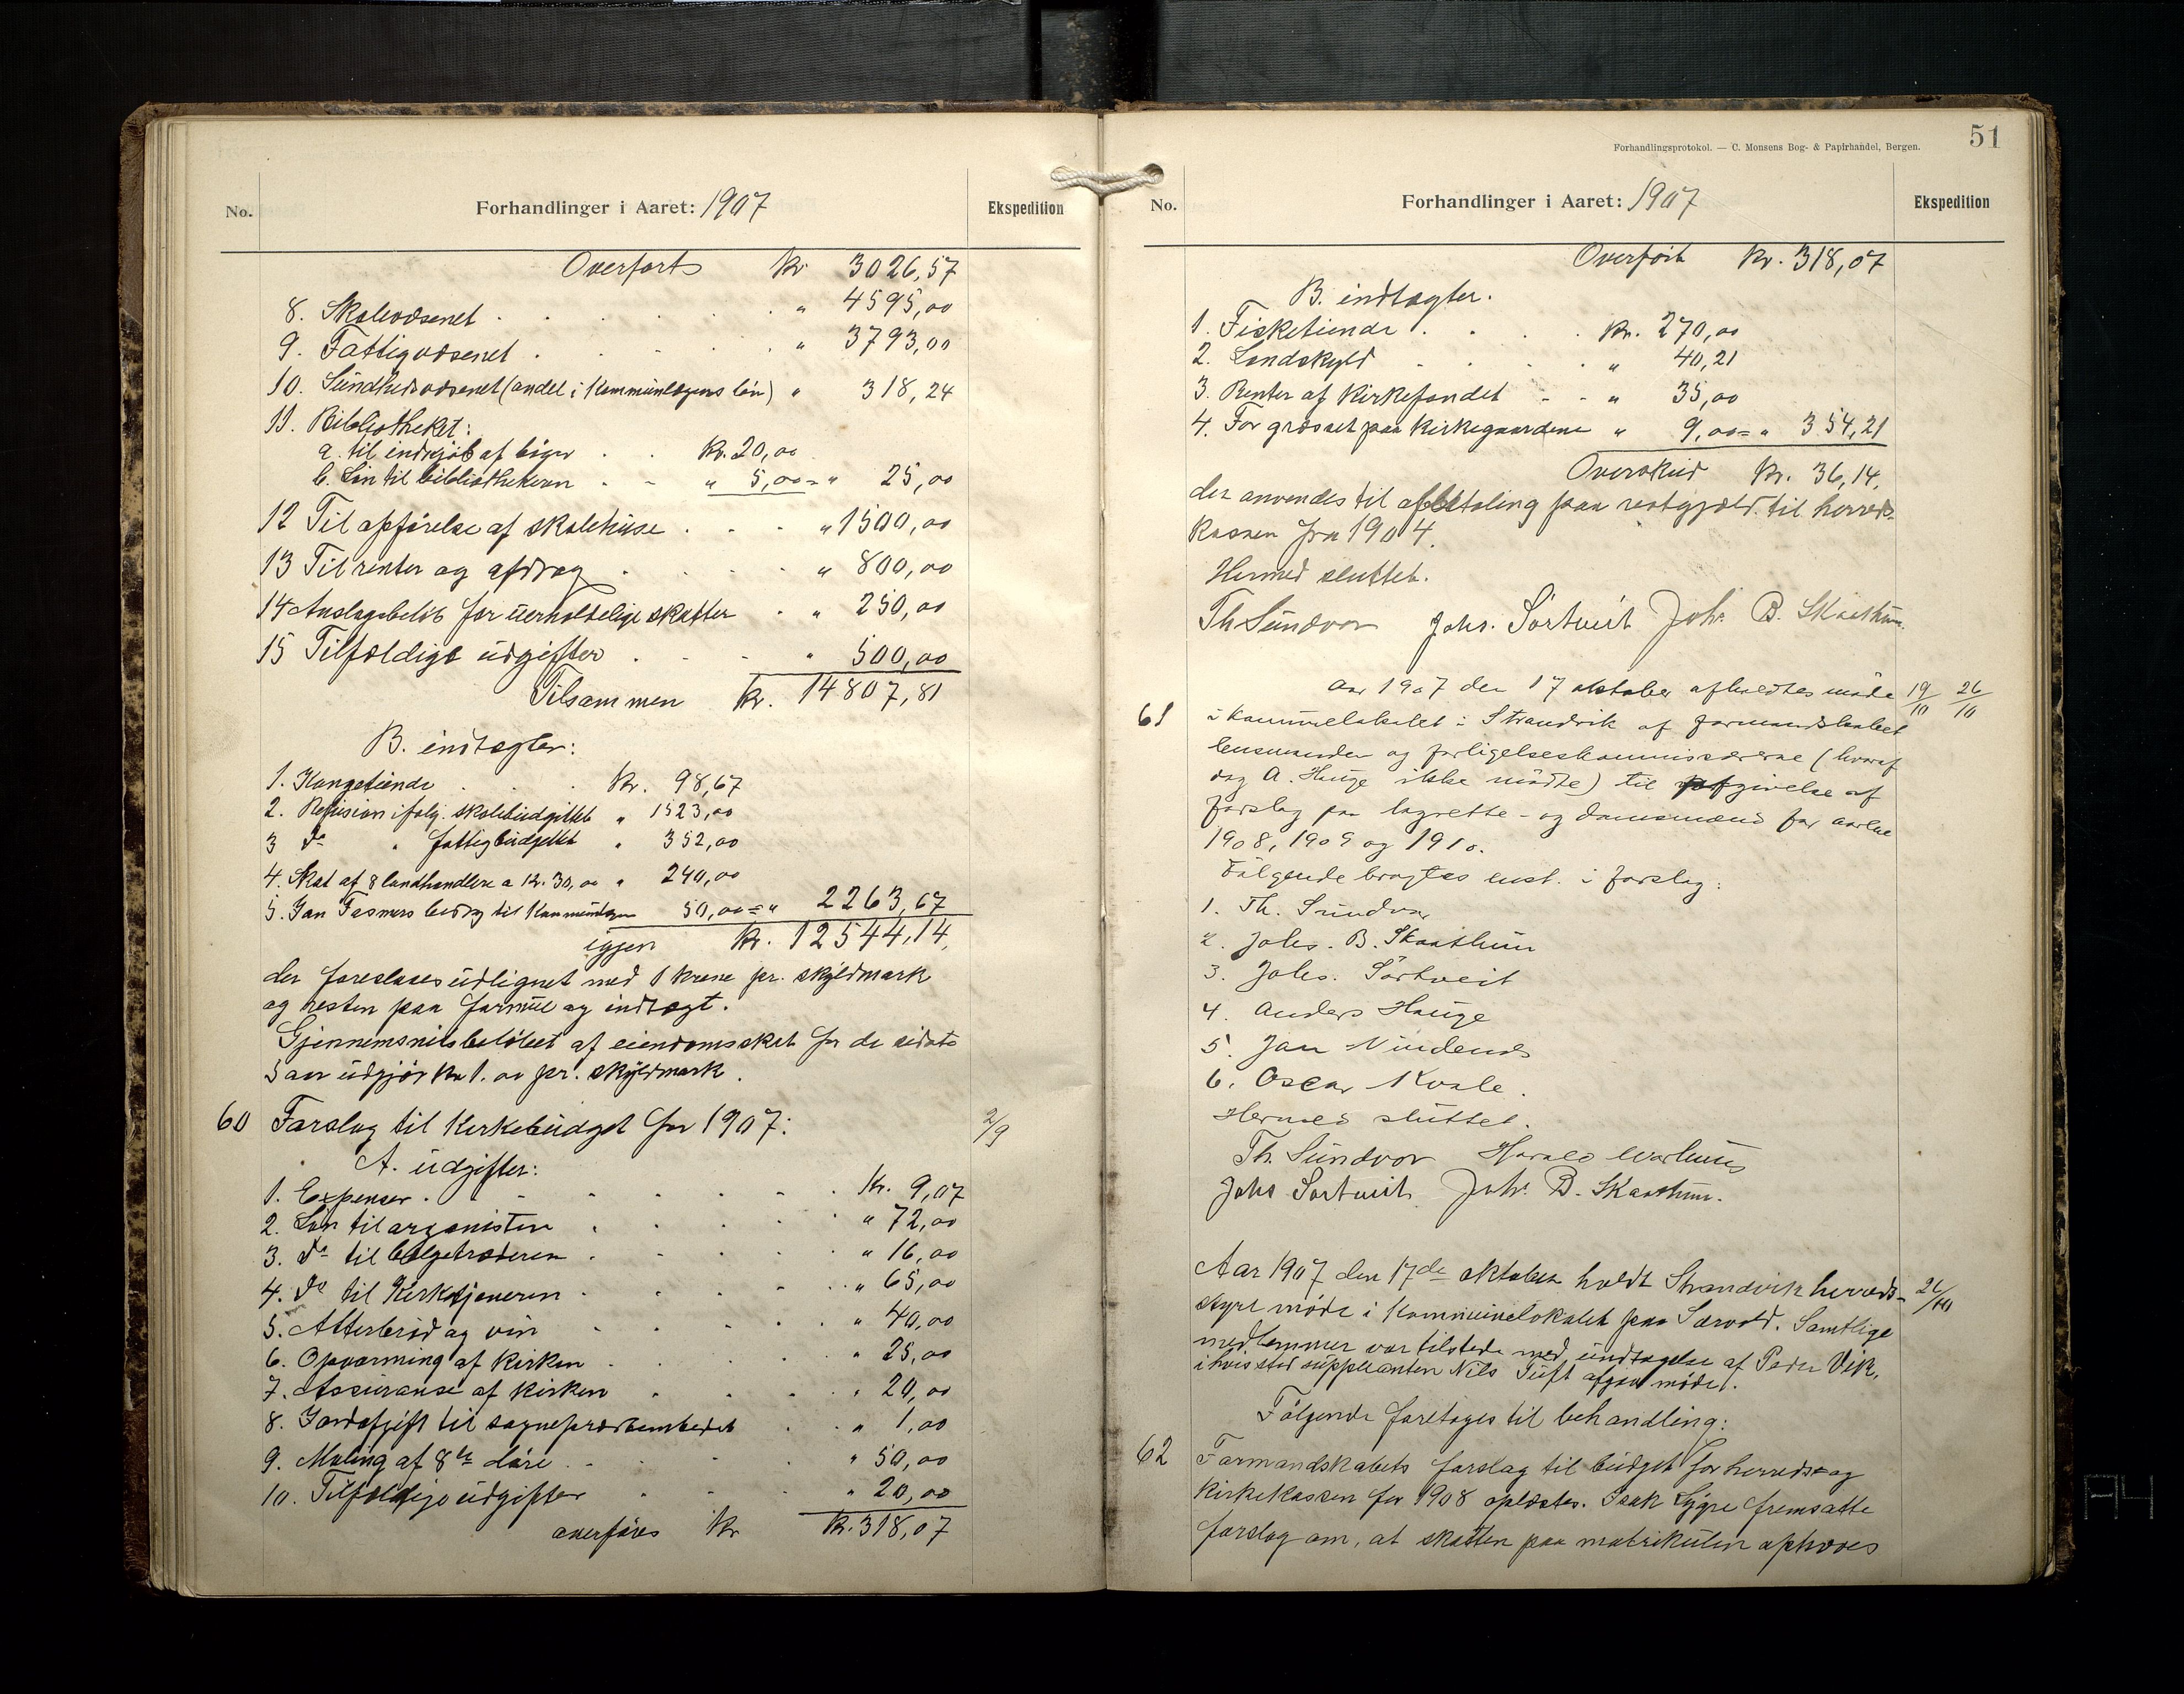 No. Forhandlinger i Aaret: 1907 Ekspedition
Overførts Kr. 3026,57
8. Skolevæsenet . . . . . " 4595,00
9. Fattigvæsenet . . . . . " 3793,00
10. Sundhedsvæsenet (andel i Kommunelægens løn) " 318,24
11. Bibliotheket:
a. til indkjøb af bøger . . Kr. 20,00
b. Løn til bibliothekeren . . " 5,00 = " 25,00
12 Til opførelse af skolehuse . . . " 1500,00
13 Til renter og afdrag . . . . " 800,00
14 Anslagsbeløb for uerholdelige skatter . " 250,00
15 Tilfældige udgifter . . . " 500,00
Tilsammen Kr. 14807,81
B. indtægter:
1. Kongetiende . . . Kr. 98,67
2. Refusion ifølg. skolebudgettet " 1523,00
3 do " fattigbudgettet " 352,00
4. Skat af 8 landhandlere a kr. 30,00 " 240,00
5. Jan Fasmers bidrag til Kommunelægen 50,00 = " 2263,67
igjen Kr. 12544,14
der foreslaaes udlignet med 1 krone pr. skyldmark
og resten paa formue og indtægt.
Gjennemsnitsbeløbet af eiendomsskat for de sidste
5 aar udgjør Kr 1.00 pr. skyldmark.
60 Forslag til Kirkebudget for 1907: 2/9
A. udgifter:
1. Expenser . . . . . . Kr. 9,07
2. Løn til organisten . . . . " 72,00
3. do til bælgetræderen . . . . " 16,00
4. do til Kirketjeneren . . . . " 65,00
5. Alterbrød og vin . . . . " 40,00
6. Opvarming af kirken . . . . " 25,00
7. Assuranse af kirken . . . . " 20,00
8. Jordafgift til sogneprestembedet . . " 1,00
9. Maling af 8te døre . . . . " 50,00
10. Tilfældige udgifter . . . " 20,00
overføres Kr Kr. 318,07
51
Forhandlingsprotokol. — C. Monsens Bog- & Papirhandel, Bergen.
No. Forhandlinger i Aaret: 1907 Ekspedition
Overført Kr. 318,07
B. indtægter.
1. Fisketiende . . . . Kr. 270,00
2. Landskyld . . . . " 40,21
3. Renter af Kirkefondet . . " 35,00
4. For græsset paa kirkegaardene " 9,00 = " 354,21
Overskud Kr. 36,14,
der anvendes til afbetaling paa restgjæld til herreds-
kassen fra 1904.
Hermed sluttet.
Th Sundvor Johs. Sørtveit Johs B. Skaathun.
Aar 1907 den 17 oktober afholdtes møde 19/10 26/10
61 i kommunelokalet i Strandvik af formandskabet
lensmanden og forligelseskommissærerne (hvoraf
dog A. Hauge ikke mødte) til afgivelse af
forslag paa lagrette- og domsmænd for aarene
1908, 1909 og 1910.
Følgende bragtes enst. i forslag:
1. Th. Sundvor
2. Johs. B. Skaathun
3. Johs. Sørtveit
4. Anders Hauge
5. Jan
6. Oscar Kvale.
Hermed sluttet.
Th. Sundvor Harald
Johs Sørtveit Johs B. Skaathun.
Aar 1907 den 17de oktober holdt Strandvik herreds- 26/10
styre møde i Kommunelokalet paa Særvold. Samtlige
medlemmer var tilstede med undtagelse af Peder Vik,
i hvis sted suppleanten Nils Tuft afgav møde.
Følgende foretoges til behandling:
62 Formandskabets forslag til budget for herreds- og
kirkekassen for 1908 oplæstes. Isak Lygre fremsatte
forslag om, at skatten paa matrikulen ophæves